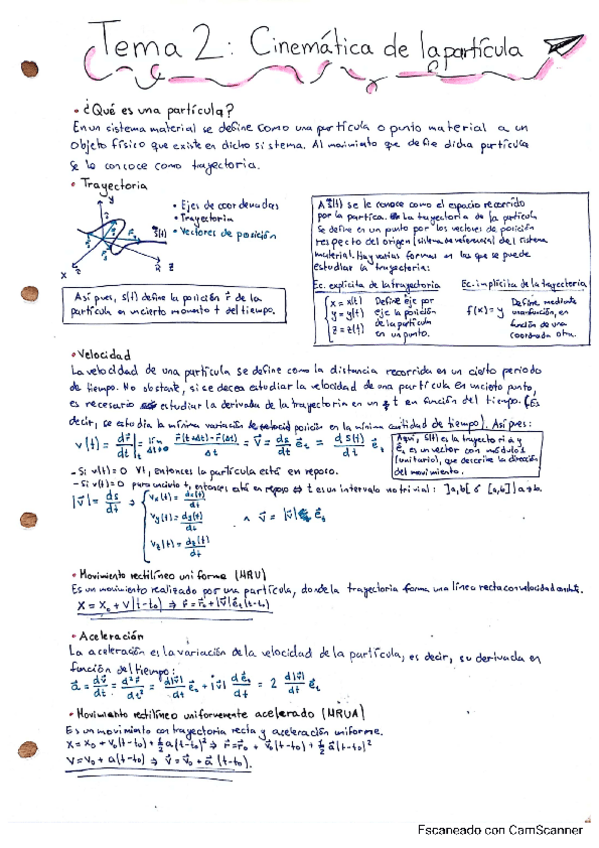 Tema 2: Cinemática de la partícula
• ¿Qué es una partícula?
En un sistema material se define como una partícula o punto material a un
objeto físico que existe en dicho sistema. Al movimiento que define dicha partícula
se le conoce como trayectoria.
• Trayectoria
y
s(t)
x
z
• Ejes de coordenadas
• Trayectoria
• Vectores de posición
Así pues, s(t) define la posición r⃗ de la
partícula en un cierto momento t del tiempo.
A s(t) se le conoce como el espacio recorrido
por la partícula. La trayectoria de la partícula
se define en un punto por los vectores de posición
respecto del origen (sistema de referencia) del sistema
material. Hay varias formas en las que se puede
estudiar la trayectoria:
Ec. explícita de la trayectoria
x = x(t)
y = y(t)
z = z(t)
Define eje por
eje la posición
de la partícula
en un punto.
Ec. implícita de la trayectoria
f(x) = y
Define mediante
una función, en
función de una
coordenada otra.
• Velocidad
La velocidad de una partícula se define como la distancia recorrida en un cierto periodo
de tiempo. No obstante, si se desea estudiar la velocidad de una partícula en un cierto punto,
es necesario estudiar la derivada de la trayectoria en un t en función del tiempo. (Es
decir, se estudia la mínima variación de posición en la mínima cantidad de tiempo). Así pues:
v(t) = dr⃗/dt = lím r⃗(t+Δt) - r⃗(Δt) / Δt = v⃗ = ds/dt e⃗t = d s(t)/dt e⃗t
Aquí, s(t) es la trayectoria y
e⃗t es un vector con módulo 1
(unitario), que describe la dirección
del movimiento.
- Si v(t) = 0 ∀t, entonces la partícula está en reposo.
- Si v(t) = 0 para un cierto t, entonces está en reposo ⇔ t es un intervalo no trivial: ]a,b[ ó [a,b] | a≠b.
|v⃗| = ds/dt ⇒
vx(t) = dx(t)/dt
vy(t) = dy(t)/dt
vz(t) = dz(t)/dt
∧ v⃗ = |v⃗| e⃗t
• Movimiento rectilíneo uniforme (MRU)
Es un movimiento realizado por una partícula, donde la trayectoria forma una línea recta con velocidad constante.
x = x₀ + v(t-t₀) ⇒ r⃗ = r⃗₀ + |v⃗|e⃗t(t-t₀)
• Aceleración
La aceleración es la variación de la velocidad de la partícula, es decir, su derivada en
función del tiempo:
a⃗ = dv⃗/dt = d²r⃗/dt² = d|v⃗|/dt e⃗t + |v⃗| de⃗t/dt = 2 d|v⃗|/dt e⃗t
• Movimiento rectilíneo uniformemente acelerado (MRUA)
Es un movimiento con trayectoria recta y aceleración uniforme.
x = x₀ + v₀(t-t₀) + ½a(t-t₀)² ⇒ r⃗ = r⃗₀ + v⃗₀(t-t₀) + ½a⃗(t-t₀)²
v = v₀ + a(t-t₀) ⇒ v⃗ = v⃗₀ + a⃗(t-t₀).
Escaneado con CamScanner